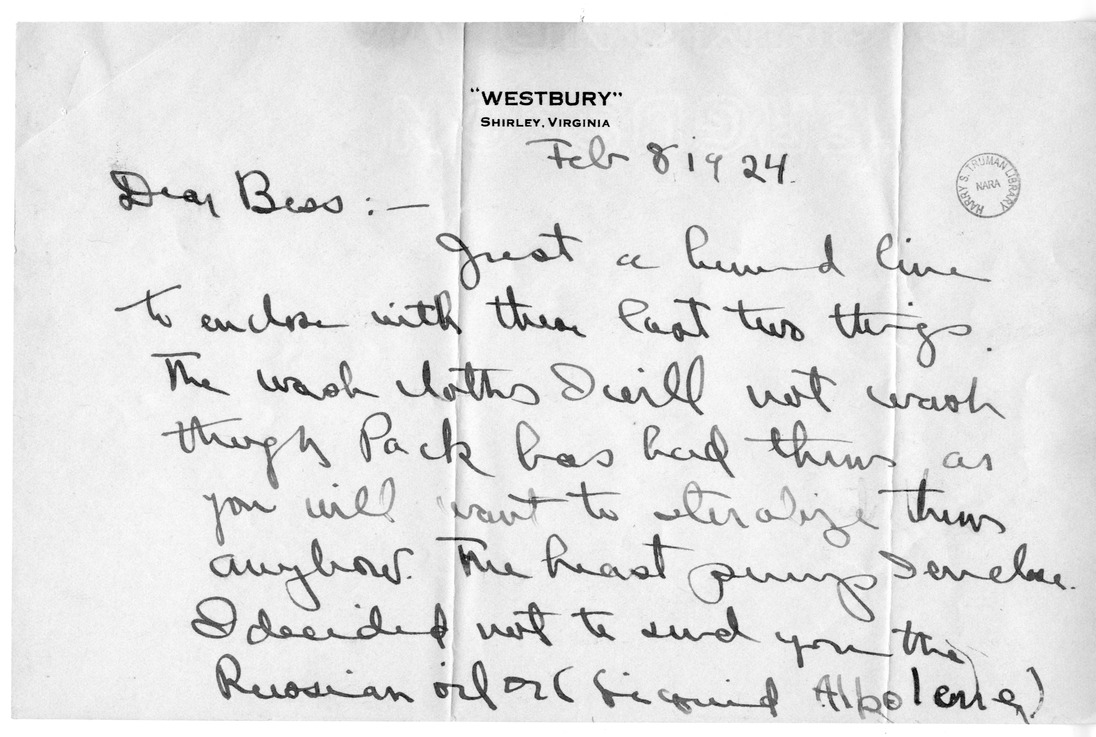 "WESTBURY"
SHIRLEY, VIRGINIA
Feb 8 1924.
HARRY S. TRUMAN LIBRARY
NARA
Dear Bess:—
Just a hurried line
to enclose with these last two things.
The wash cloths I will not wash
though Pack has had them as
you will want to steralize them
anyhow. The breast pump I enclose.
I decided not to send you the
Russian oil or (Liquid Albolene)